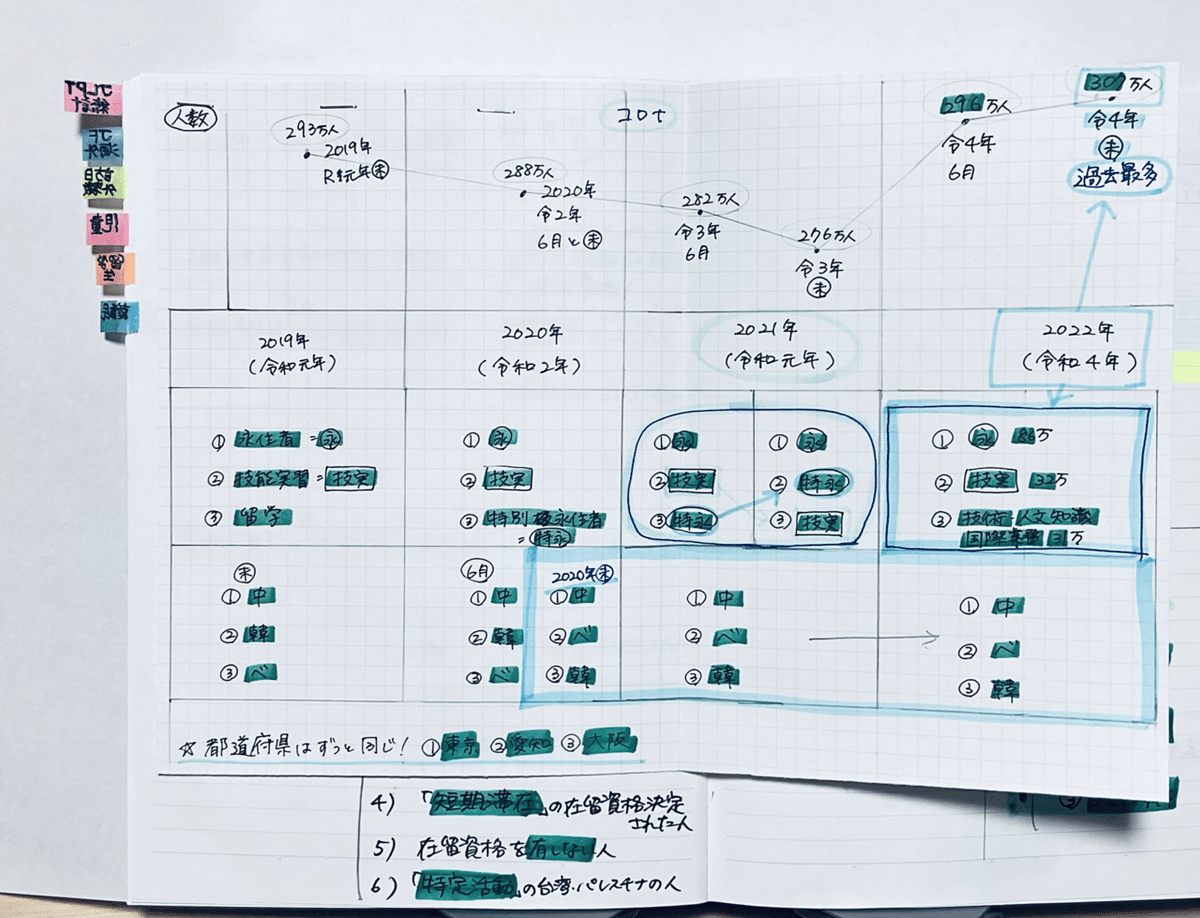 人数
293万人
2019年
R元年末
288万人
2020年
令2年
6月と末
コロナ
282万人
令3年
6月
276万人
令3年
末
296万人
令4年
6月
307万人
令4年
末
過去最多
2019年
(令和元年)
2020年
(令和2年)
2021年
(令和元年)
2022年
(令和4年)
① 永住者 = 永
② 技能実習 = 技実
③ 留学
① 永
② 技実
③ 特別永住者
= 特永
① 永
② 技実
③ 特永
① 永
② 特永
③ 技実
① 永 86万
② 技実 32万
③ 技術 人文知識
国際業務 31万
末
① 中
② 韓
③ ベ
6月
① 中
② 韓
③ ベ
2020年末
① 中
② ベ
③ 韓
① 中
② ベ
③ 韓
① 中
② ベ
③ 韓
☆ 都道府県はずっと同じ! ①東京 ②愛知 ③大阪
4) 「短期滞在」の在留資格決定
された人
5) 在留資格を有しない人
6) 「特定活動」の台湾・パレスチナの人
JLPT
統計
JF
海外
訪日
外客数
児童
留学
生
難民
③